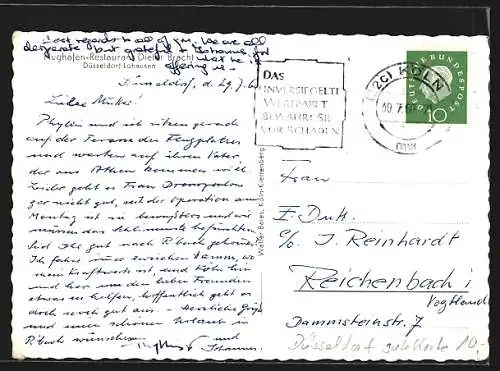 Best regards to all of you. We are all
desperate but grateful to Johannes for
Flughafen-Restaurant Dieter Bracht
what he is
Düsseldorf-Lohausen
offering us
Düsseldorf, d. 29.7.6
Liebe
Phyllis und ich sitzen gerade
auf der Terrasse des Flugplatzes
und warten auf ihren Vater,
der aus Athen kommen will.
Leider geht es Frau
gar nicht gut, seit der Operation am
Montag ist sie bewußtlos und wir
müssen das Schlimmste befürchten.
Seid Ihr gut nach R'bach gekommen?
Ich fahre immer zwischen Hamm, wo
mein Kraftwerk ist, und Köln hin
und her um den lieben Freunden
etwas zu helfen, hoffentlich geht es
doch noch gut aus. Herzliche Grüße
und einen schönen Urlaub in
R'bach wünschen
und
Johannes
Walter Beien, Köln-Klettenberg
DAS
UNVERSIEGELTE
WERTPAKET
BEWAHRE SIE
VOR SCHADEN
(22c) KÖLN
DEUTSCHE BUNDESPOST
10
Frau
E. Dutt
c/o J. Reinhardt
Reichenbach i
Vogtland
Dammsteinstr. 7
Düsseldorf gute Karte 10.-